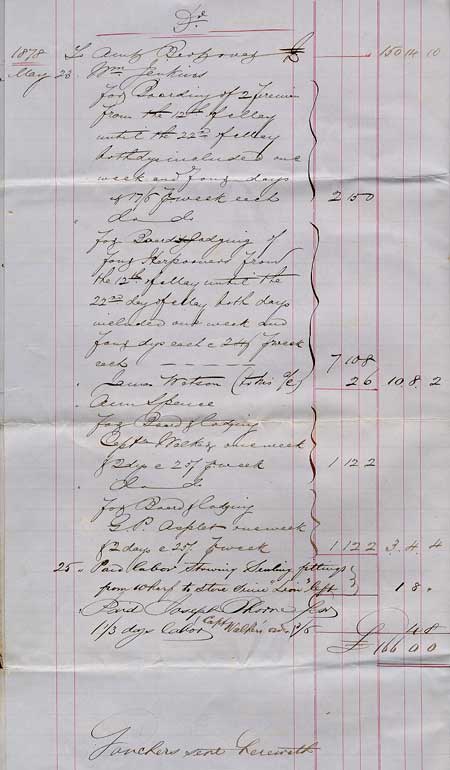 Dr
1878 To Amt Bro forward £ 150 14 10
May 23 Wm Jenkins
for Boarding of 2 Firemen
from the 12th of May
until the 22nd of May
both days included one
week and four days
@ 17/6 P week each 2 15 0
" Do Do
for Board & lodging of
four Harpooners from
the 12th of May until the
22nd day of May both days
included one week and
four dys each @ 24/ P week
each 7 10 8
" James Watson (to his a/c) 2 6 10 8 2
" Ann Spence
for Board & lodging
Captn Walker one week
& 2 dys @ 25/ P week 1 12 2
" Do Do
for Board & lodging
G. P. Asplet one week
& 2 days @ 25/ P week 1 12 2 3 4 4
25 " Paid labor stowing Sealing fittings
from wharf to Store Since "Lion" left 1 8 0
Paid Joseph Thorne for
1 1/3 dys labor Capt Walker's ord. 4 8
£ 166 0 0
Vouchers sent herewith